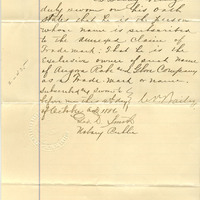 duly sworn on his oath
states that he is the person
whose name is subscribed
to the annexed Claim of
Trade mark; That he is the
exclusive owner of said name
of Angora Robe and Glove Company
as a Trade mark or name.
Subscribed & Sworn to by
before me this day
of October AD 1886
Geo. D. Smith
Notary Public